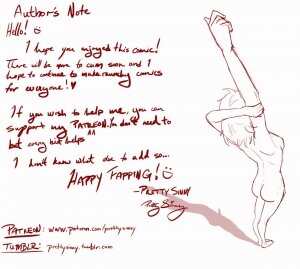 Author's Note
Hello! :)
I hope you enjoyed this comic!
There will be more to come soon and I
hope to continue to make raunchy comics
for everyone! ♥
If you wish to help me, you can
support my PATREON. You don't need to
but every bit helps ^^
I don't know what else to add so...
HAPPY FAPPING! :)
-PRETTY SINNY
PATREON: www.patreon.com/prettysinny
TUMBLR: prettysinny.tumblr.com